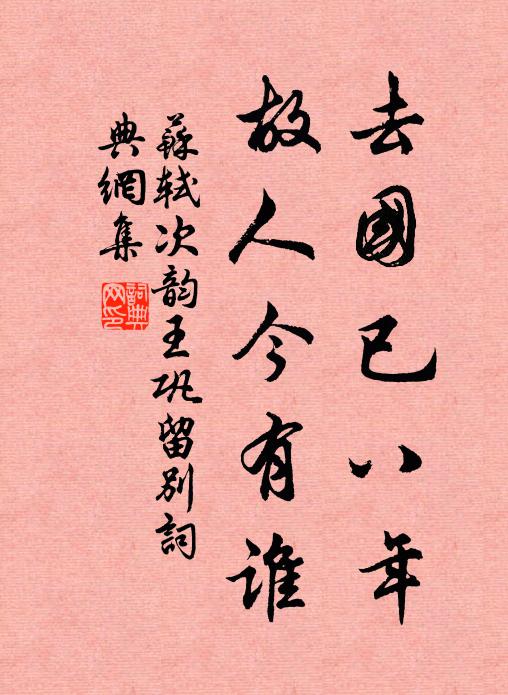 去國已八年
故人今有誰
蘇軾次韵王鞏留別詞
典網集
詞典网印